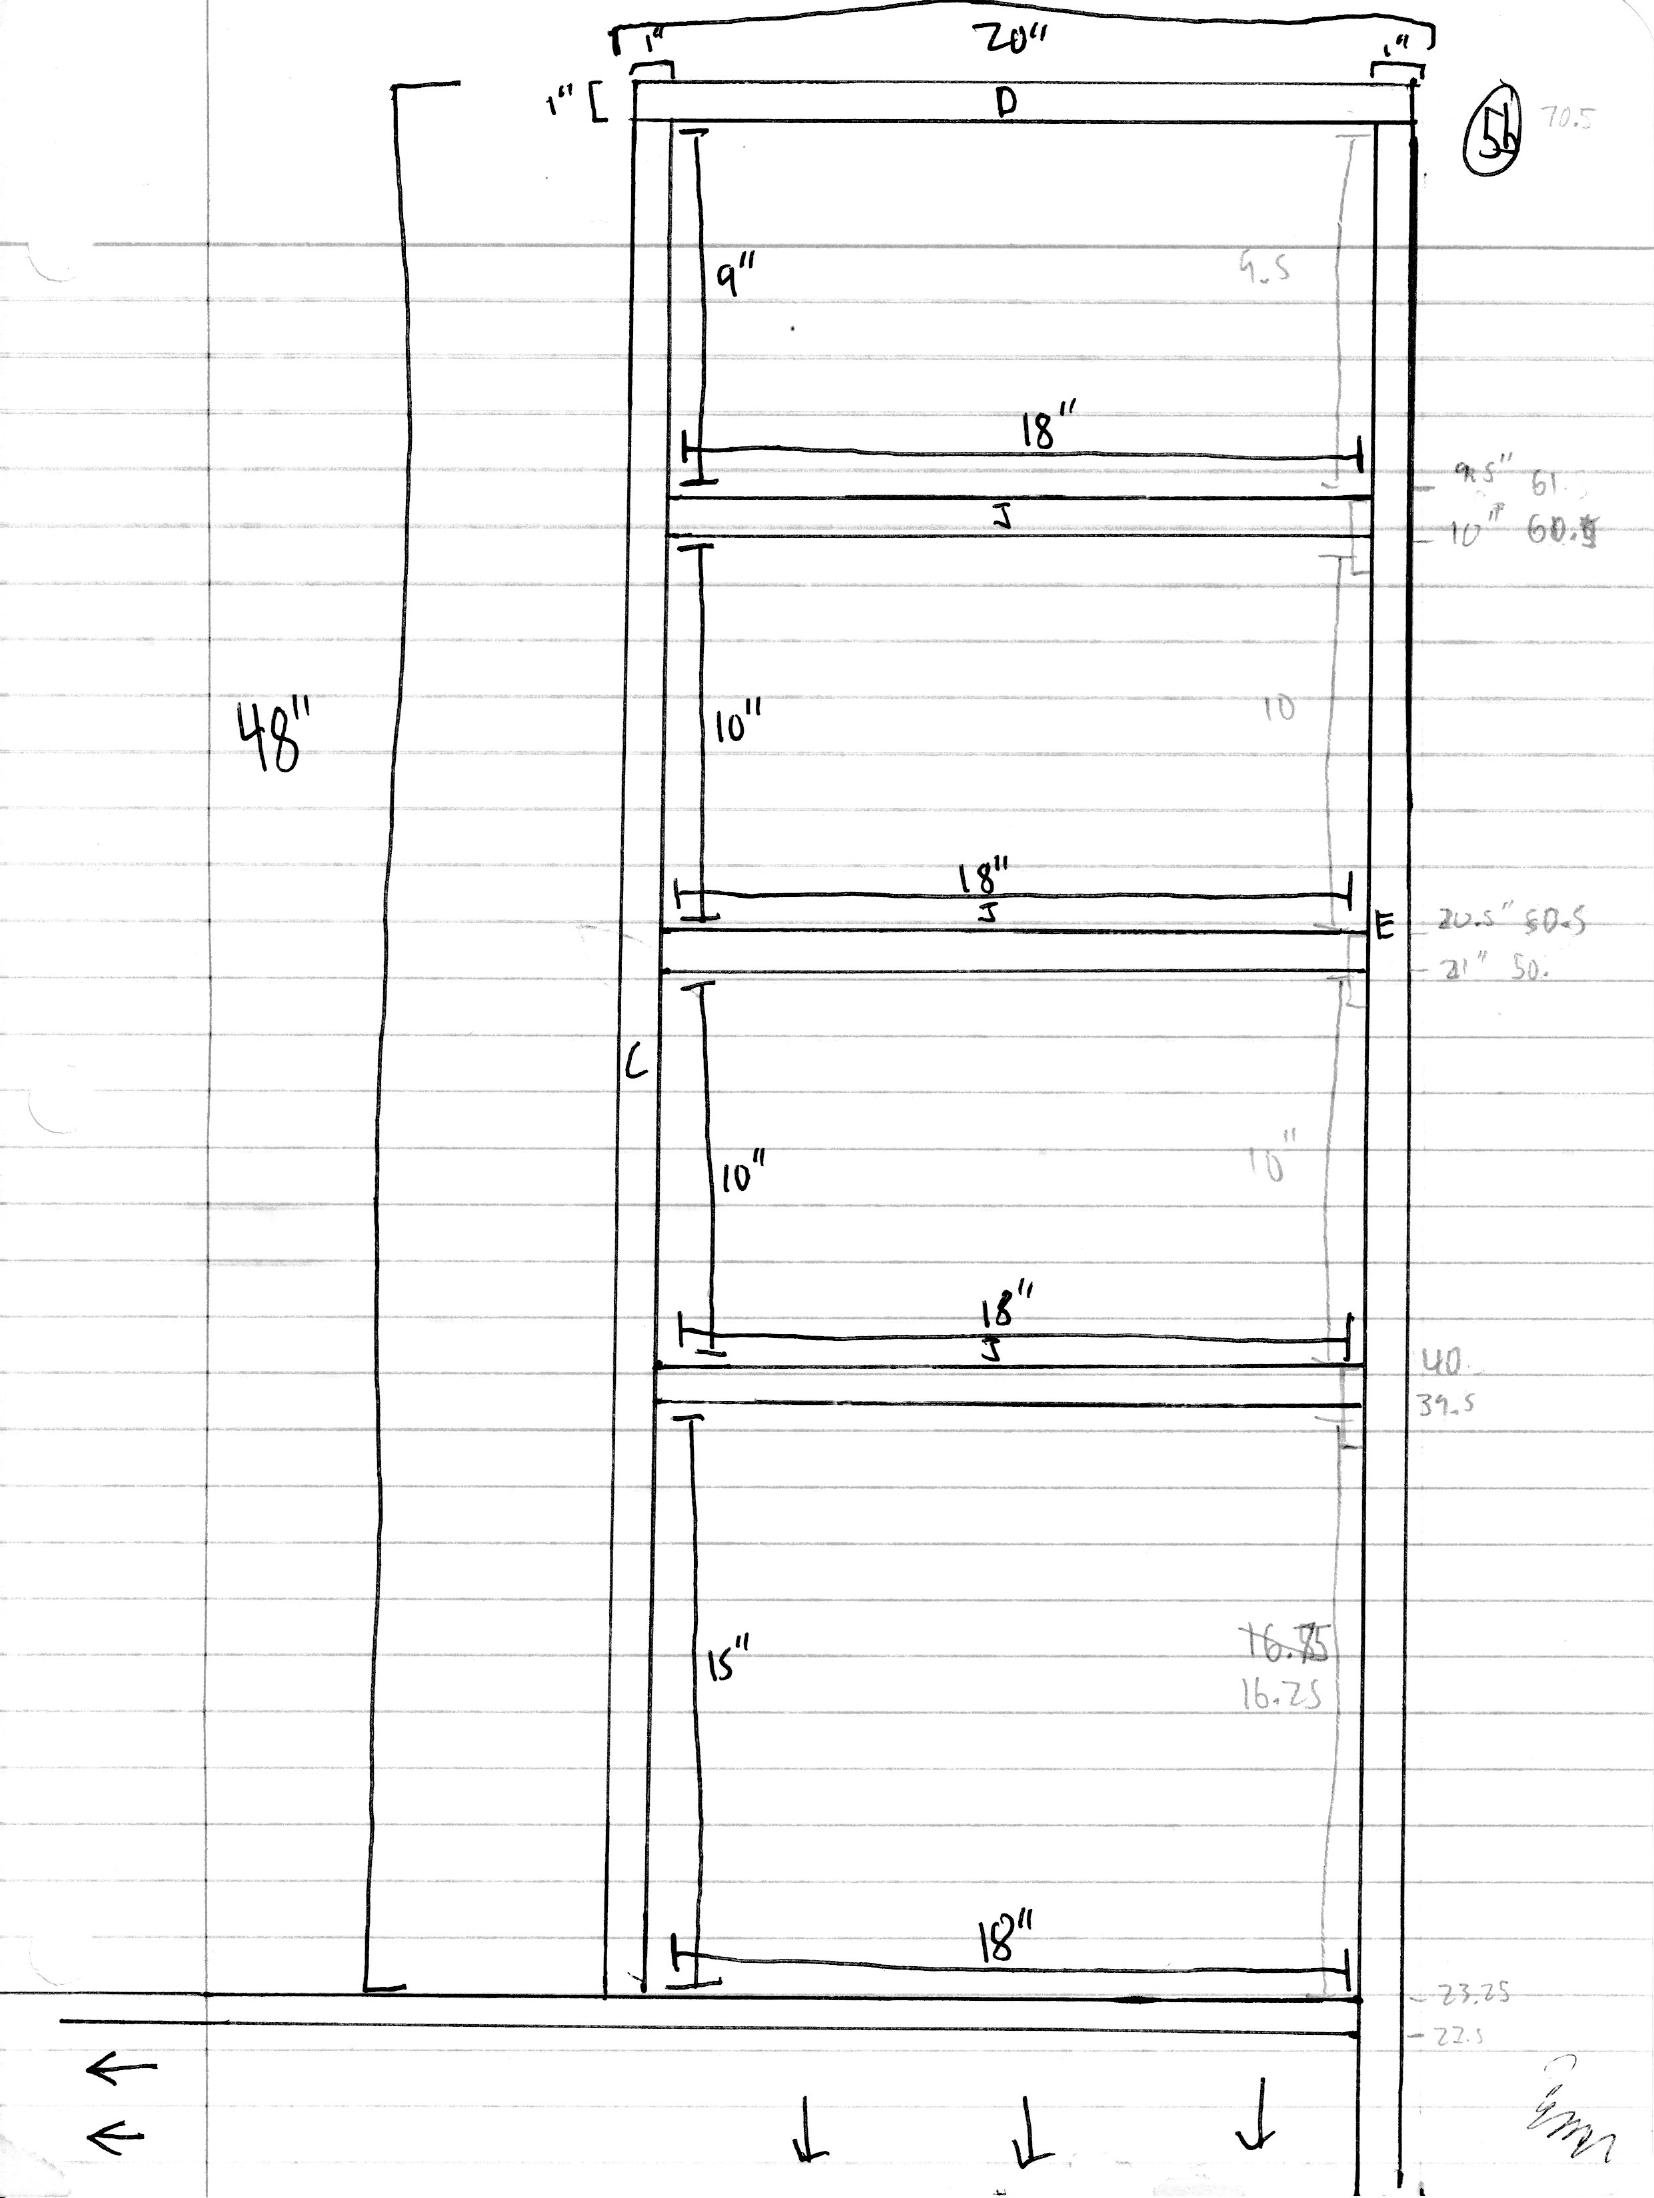 20"
1"
1"
1"
D
5b
70.5
9"
9.5
18"
9.5" 61
J
10" 60.5
10"
10
18"
J
E
20.5" 50.5
21" 50.
C
10"
10"
18"
J
40
39.5
48"
15"
16.75
16.25
18"
23.25
22.5